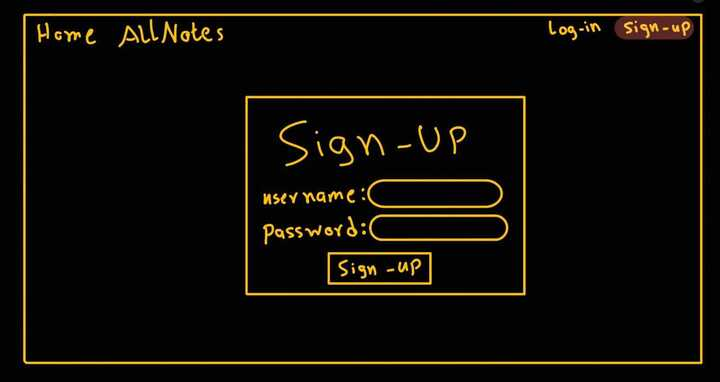 Home AllNotes Log-in Sign-up
Sign-UP
username:
password:
Sign-up